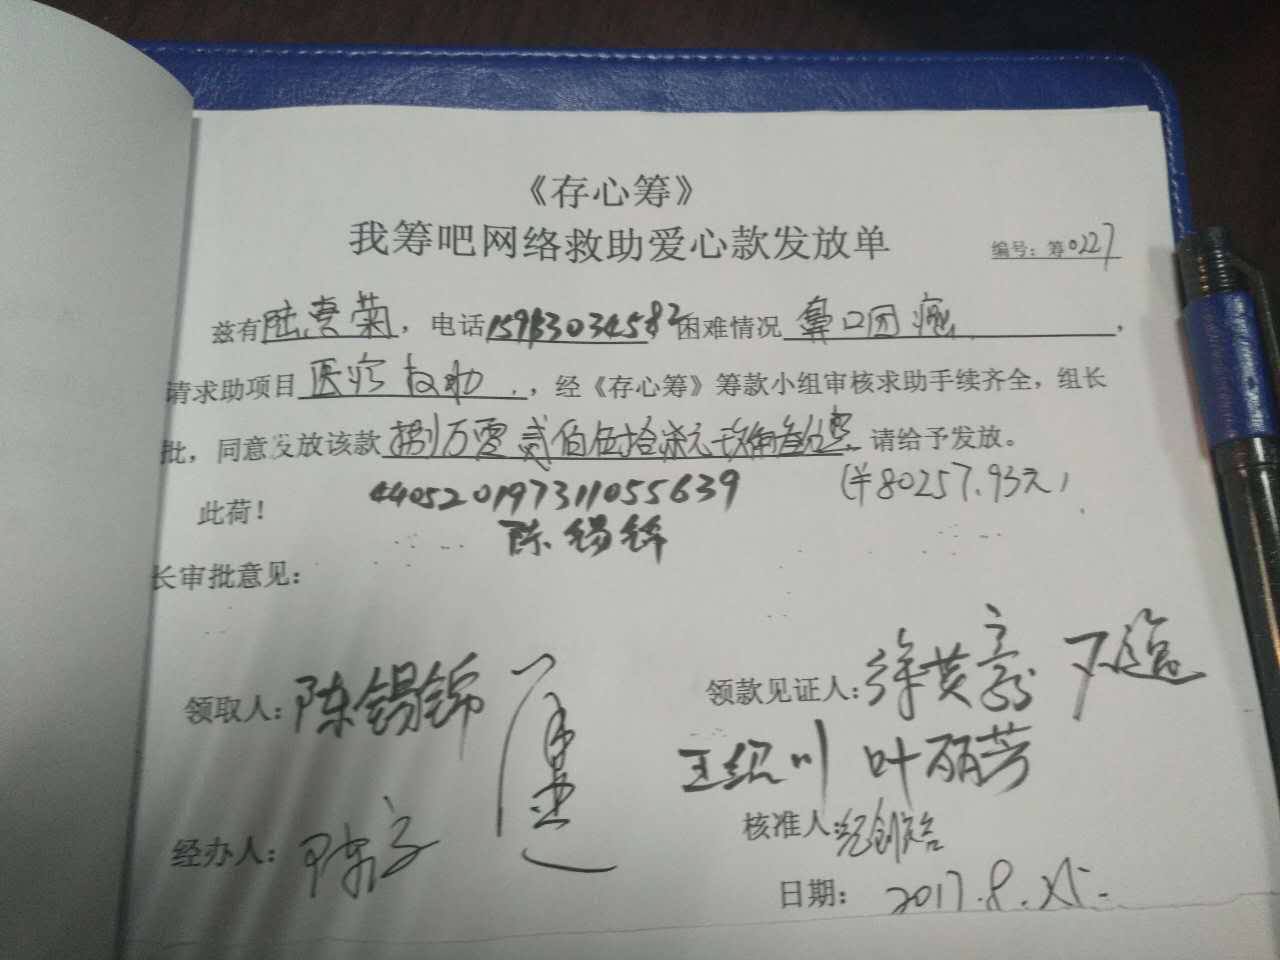 《存心筹》
我筹吧网络救助爱心款发放单
编号：筹0227
兹有陆惠菊，电话15913034582困难情况鼻口因癌，
请求助项目医疗救助，经《存心筹》筹款小组审核求助手续齐全，组长
批，同意发放该款捌万零贰佰伍拾柒元玖角叁分正请给予发放。
此荷！ 440520197311055639 (¥80257.93元)
陈锡锦
长审批意见：
领取人：陈锡锦 领款见证人：徐英
王绍川 叶丽芳
经办人： 核准人：
日期： 2017.8.25.